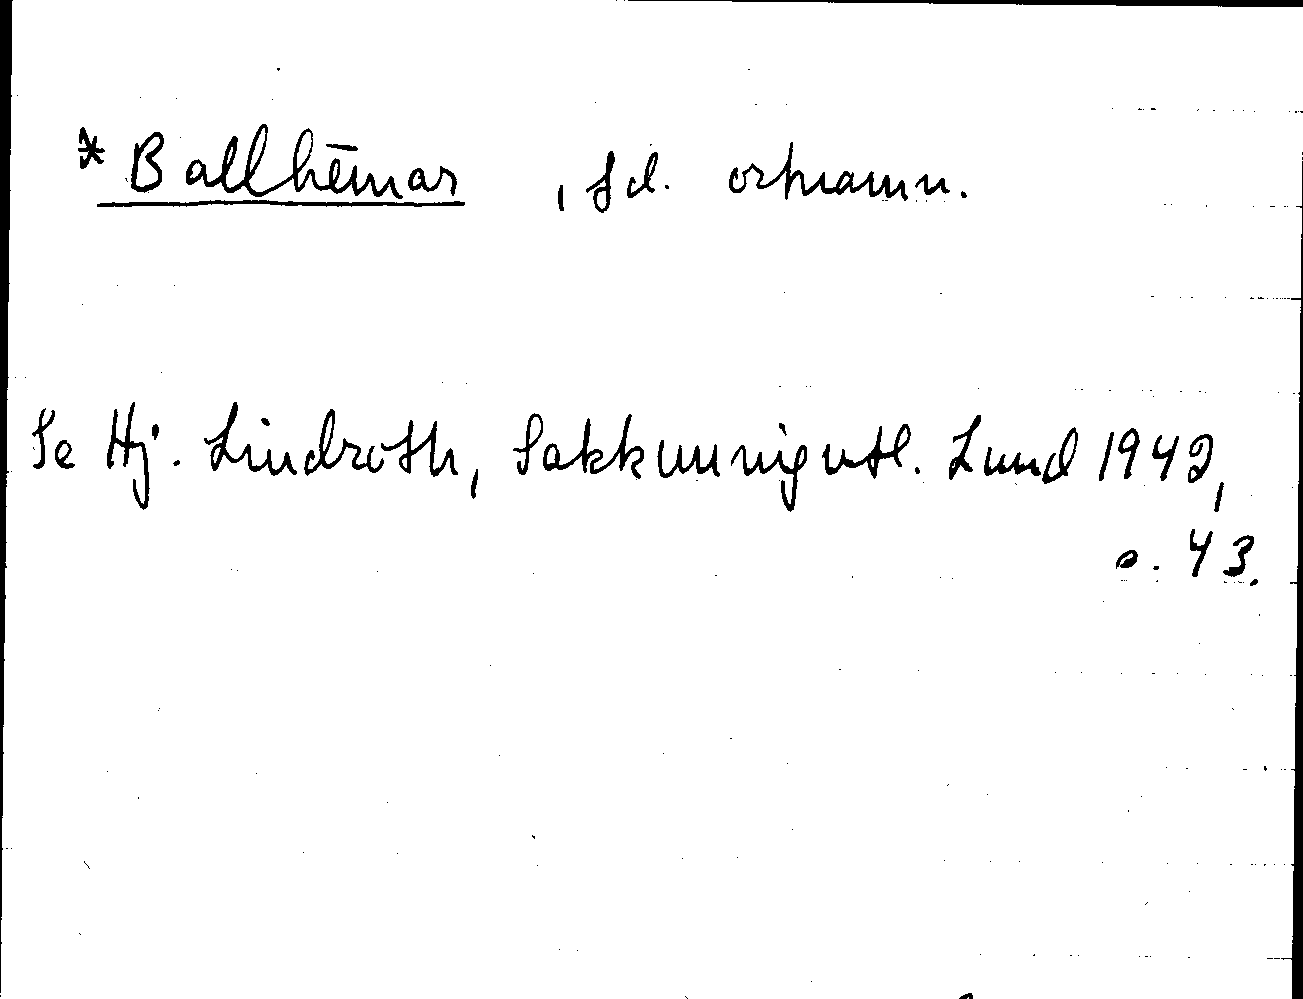 *Ballhēmar , fd. ortnamn.
Se Hj. Lindroth, Sakkunnigutl. Lund 1942,
s. 43.